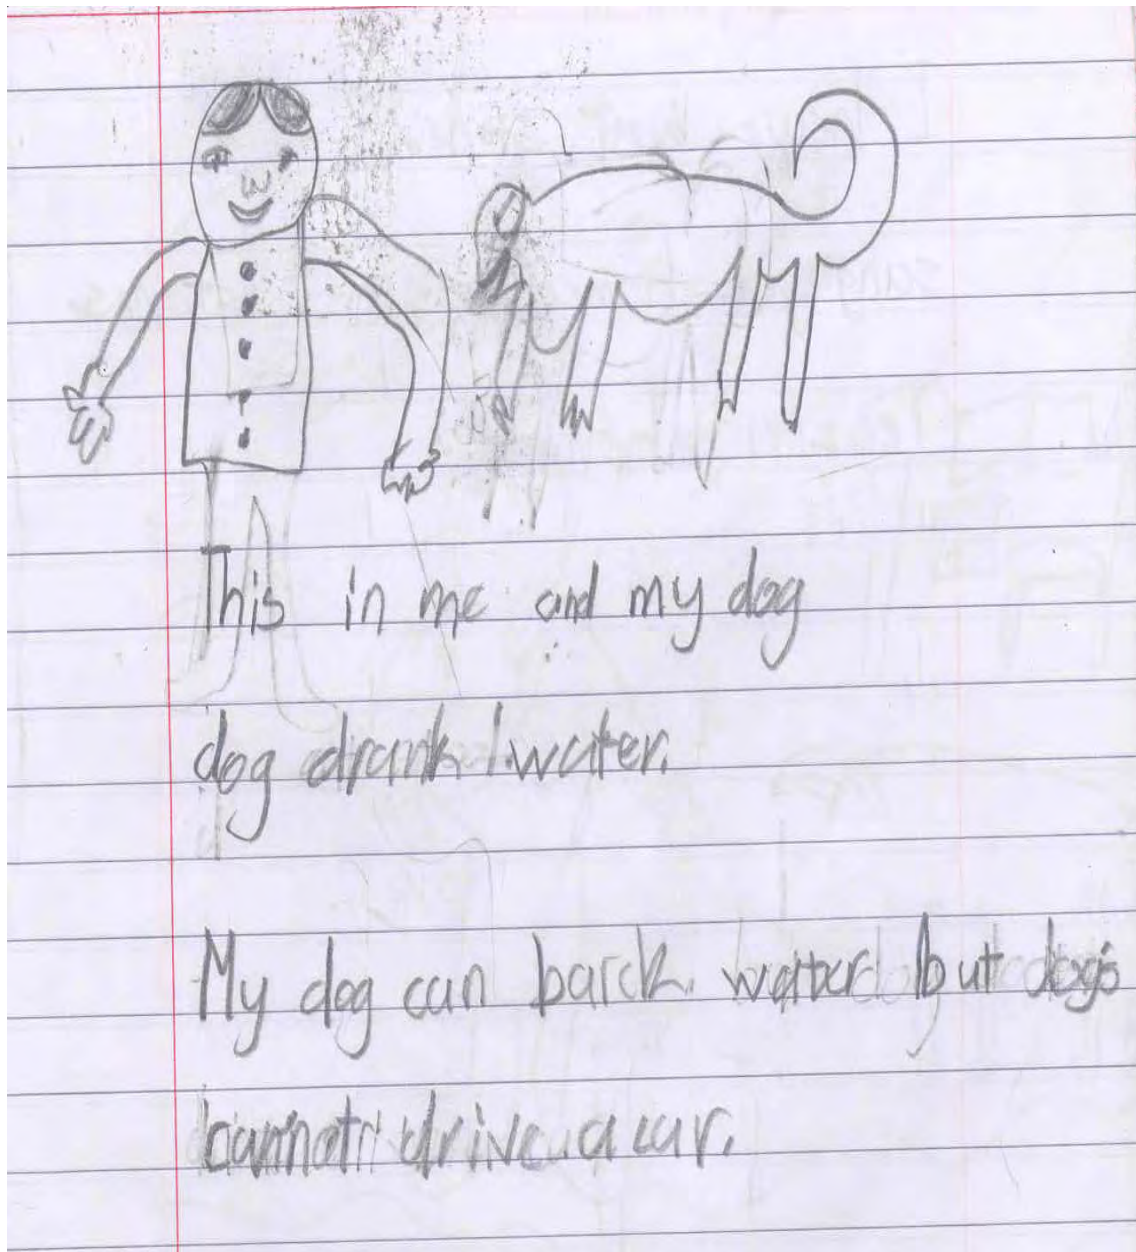 This in me and my dog
dog drank water.
My dog can barck. water but dogs
cannot drive a car.